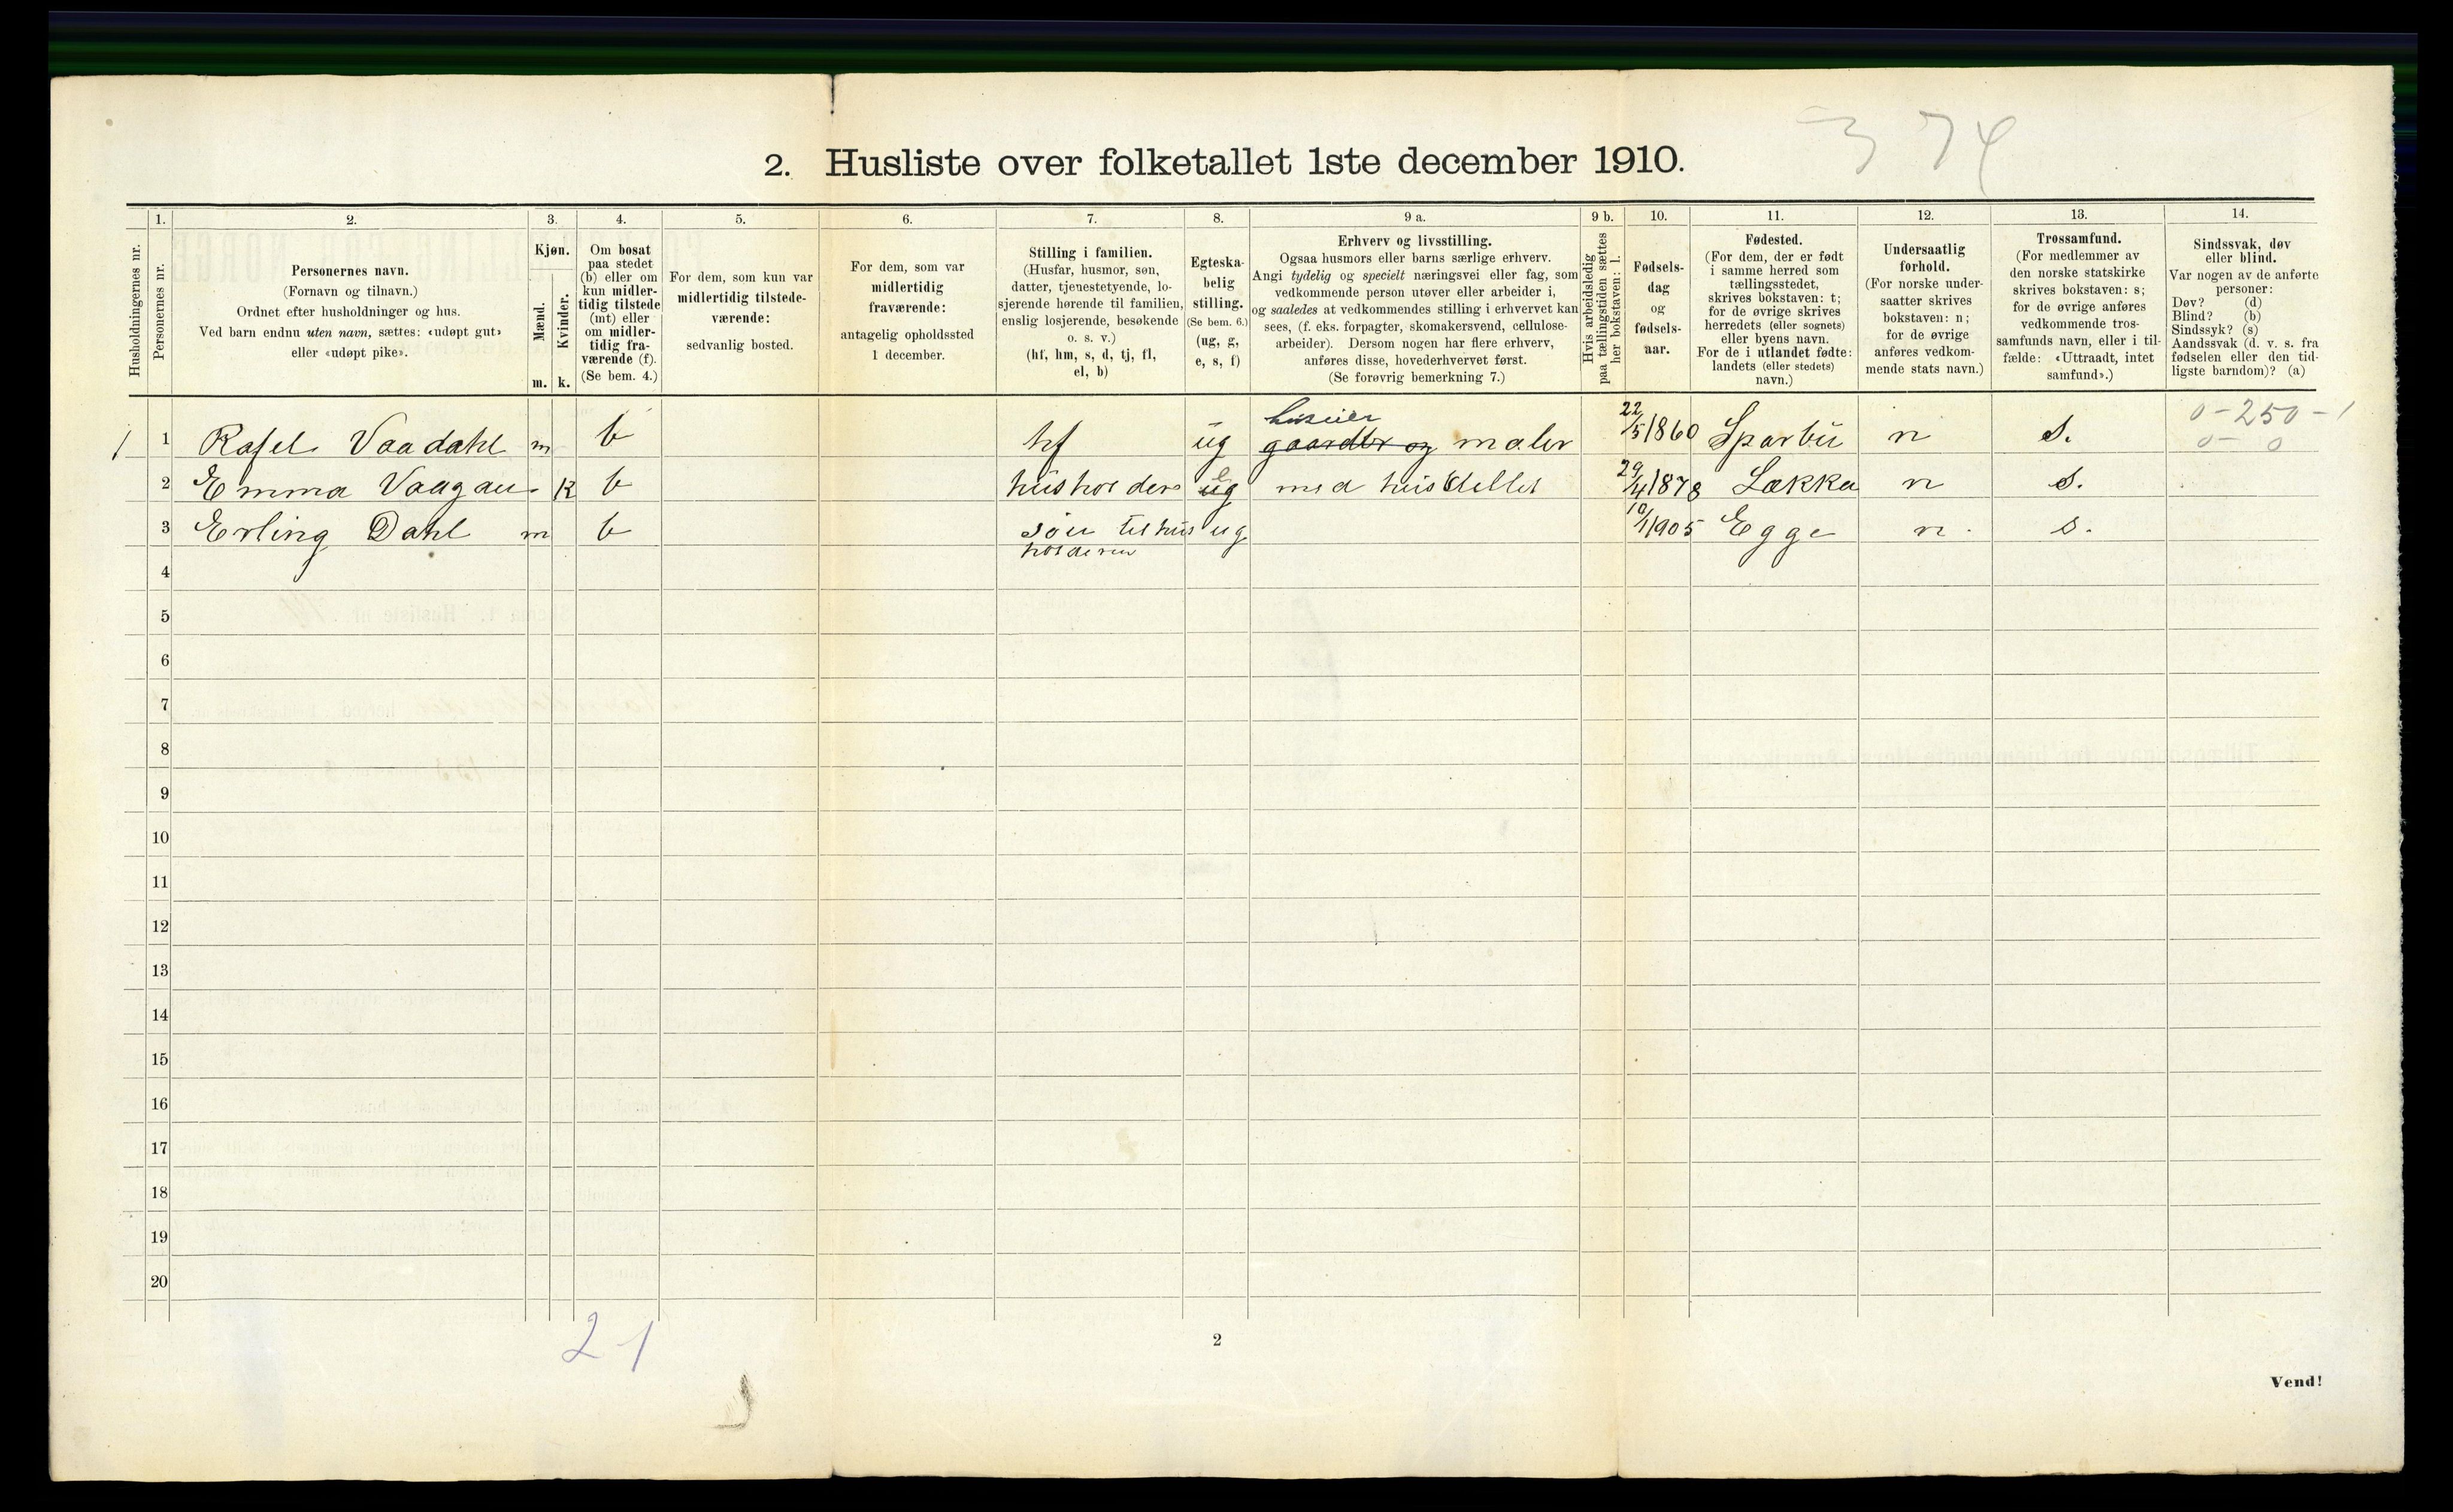 3 74
2. Husliste over folketallet 1ste december 1910.
Husholdningernes nr.
1.
Personernes nr.
2.
Personernes navn.
(Fornavn og tilnavn.)
Ordnet efter husholdninger og hus.
Ved barn endnu uten navn, sættes: «udøpt gut»
eller «udøpt pike».
3.
Kjøn.
Mænd.
Kvinder.
m. k.
4.
Om bosat
paa stedet
(b) eller om
kun midler-
tidig tilstede
(mt) eller
om midler-
tidig fra-
værende (f).
(Se bem. 4.)
5.
For dem, som kun var
midlertidig tilstede-
værende:
sedvanlig bosted.
6.
For dem, som var
midlertidig
fraværende:
antagelig opholdssted
1 december.
7.
Stilling i familien.
(Husfar, husmor, søn,
datter, tjenestetyende, lo-
sjerende hørende til familien,
enslig losjerende, besøkende
o. s. v.)
(hf, hm, s, d, tj, fl,
el, b)
8.
Egteska-
belig
stilling.
(Se bem. 6.)
(ug, g,
e, s, f)
9 a.
Erhverv og livsstilling.
Ogsaa husmors eller barns særlige erhverv.
Angi tydelig og specielt næringsvei eller fag, som
vedkommende person utøver eller arbeider i,
og saaledes at vedkommendes stilling i erhvervet kan
sees, (f. eks. forpagter, skomakersvend, cellulose-
arbeider). Dersom nogen har flere erhverv,
anføres disse, hovederhvervet først.
(Se forøvrig bemerkning 7.)
9 b.
Hvis arbeidsledig
paa tællingstiden sættes
her bokstaven: l.
10.
Fødsels-
dag
og
fødsels-
aar.
11.
Fødested.
(For dem, der er født
i samme herred som
tællingsstedet,
skrives bokstaven: t;
for de øvrige skrives
herredets (eller sognets)
eller byens navn.
For de i utlandet fødte:
landets (eller stedets)
navn.)
12.
Undersaatlig
forhold.
(For norske under-
saatter skrives
bokstaven: n;
for de øvrige
anføres vedkom-
mende stats navn.)
13.
Trossamfund.
(For medlemmer av
den norske statskirke
skrives bokstaven: s;
for de øvrige anføres
vedkommende tros-
samfunds navn, eller i til-
fælde: «Uttraadt, intet
samfund».)
14.
Sindssvak, døv
eller blind.
Var nogen av de anførte
personer:
Døv? (d)
Blind? (b)
Sindssyk? (s)
Aandssvak (d. v. s. fra
fødselen eller den tid-
ligste barndom)? (a)
huseier 0-250-1
1 1 Rafel Vaadahl m b hf ug gaardbr og maler 22/5 1860 Sparbu n s. 0- 0
2 Emma Vaagan k b husholders ug e med husstellet 29/4 1878 Lækka n s.
3 Erling Dahl m b søn til hus ug 10/1 1905 Egge n. s.
holderen
4
5
6
7
8
9
10
11
12
13
14
15
16
17
18
19
20
2 1
2
Vend!